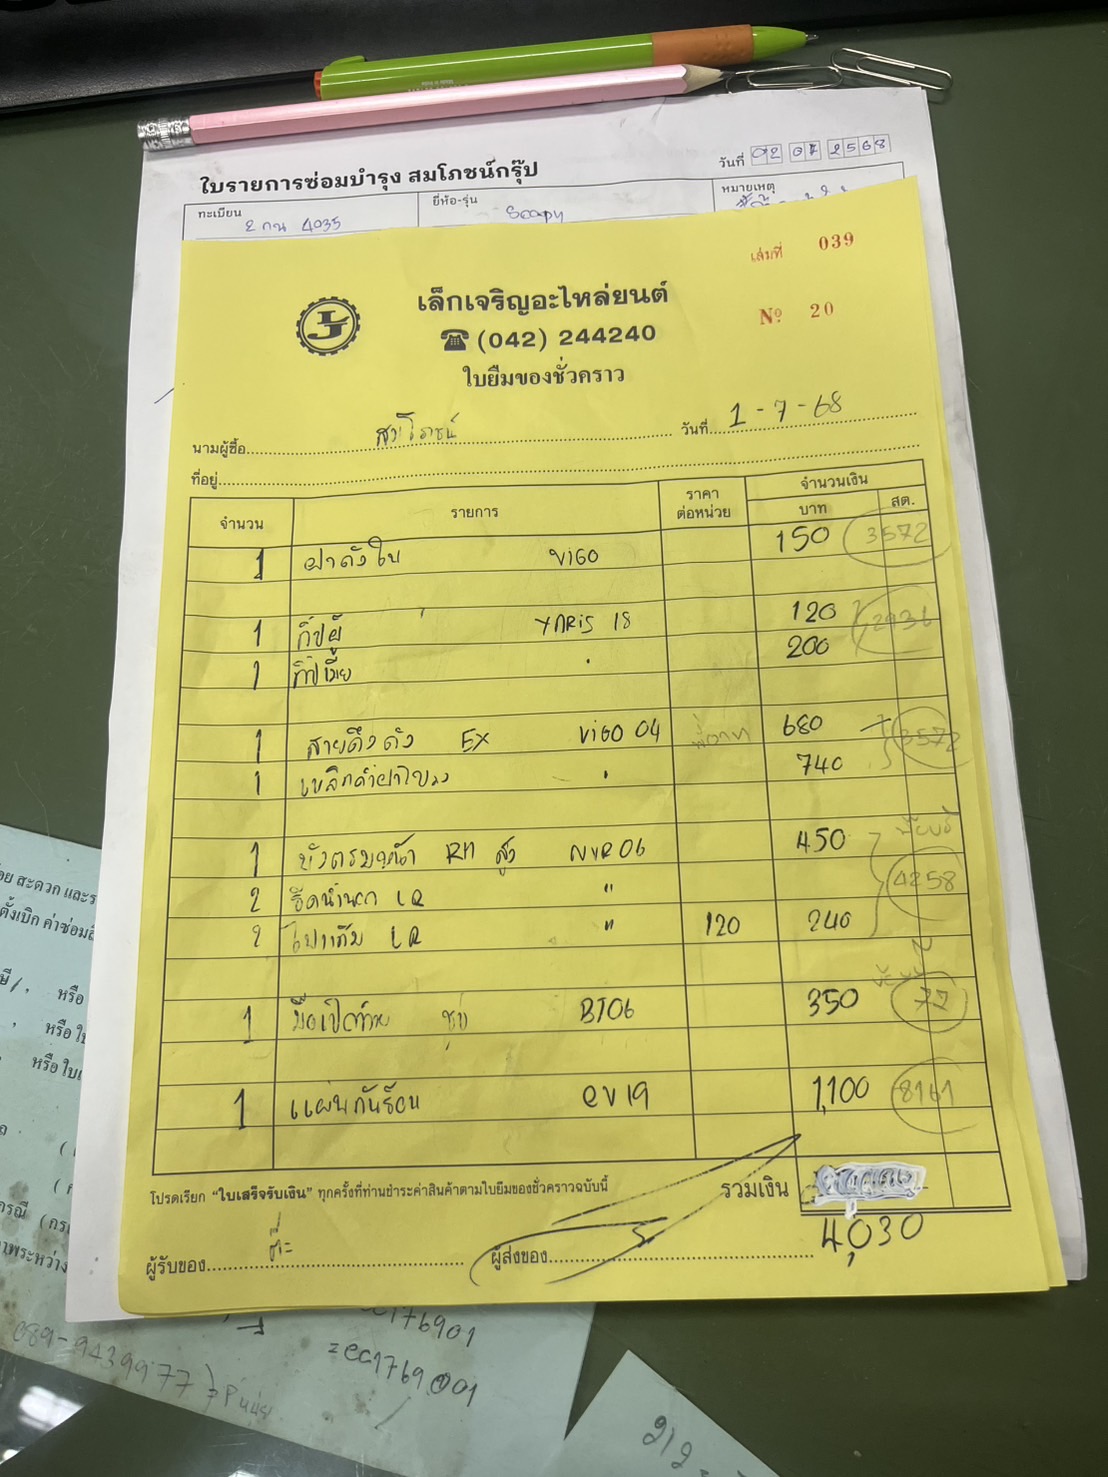 วันที่ 02 07 2568
ใบรายการซ่อมบำรุง สมโภชน์กรุ๊ป
ทะเบียน
ยี่ห้อ-รุ่น
หมายเหตุ
2 กน 4035
Scoopy
เล่มที่ 039
เล็กเจริญอะไหล่ยนต์
LJ
☎ (042) 244240
Nº 20
ใบยืมของชั่วคราว
นามผู้ซื้อ สมโภชน์ วันที่ 1-7-68
ที่อยู่
จำนวน รายการ ราคาต่อหน่วย จำนวนเงิน
บาท สต.
1 ฝาถังใน VIGO 150 3572
1 กิ๊ปผู้ YARIS 18 120
1 กิ๊ปเมีย " 200
1 สายดึงถัง EX VIGO 04 680 3572
1 เหล็กค้ำฝากระโปรง " 740
1 RH สูง NVR06 450
2 LR " 4258
2 ไฟแก้ม LR " 120 240
1 มือเปิดท้าย ชุบ BT06 350 77
1 แผ่นกันร้อน EV19 1,100 8161
โปรดเรียก "ใบเสร็จรับเงิน" ทุกครั้งที่ท่านชำระค่าสินค้าตามใบยืมของชั่วคราวฉบับนี้ รวมเงิน
4,030
ผู้รับของ
ผู้ส่งของ
อย สะดวก และร
ตั้งเบิก ค่าซ่อม
หรือ
หรือ ใบ
หรือ ใบ
089-9439977
ec176901
=ec1769001
212